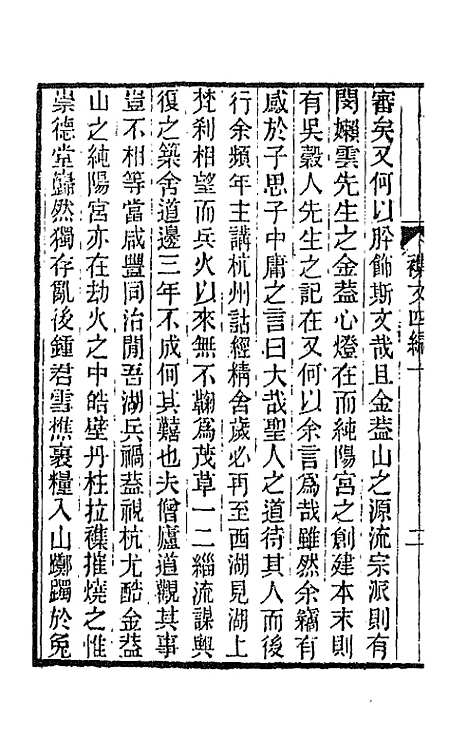 襍文四編一
二
審矣又何以肸飾斯文哉且金葢山之源流宗派則有
閔嬾雲先生之金葢心燈在而純陽宮之創建本末則
有吳穀人先生之記在又何以余言爲哉雖然余竊有
感於子思子中庸之言曰大哉聖人之道待其人而後
行余頻年主講杭州詁經精舍歲必再至西湖見湖上
梵刹相望而兵火以來無不鞠爲茂草一二緇流謀興
復之築舍道邊三年不成何其囏也夫僧廬道觀其事
豈不相等當咸豐同治閒吾湖兵禍葢視杭尤酷金葢
山之純陽宮亦在劫火之中皓壁丹柱拉襍摧燒之惟
崇德堂巋然獨存亂後鍾君雪樵裹糧入山躑躅於兔